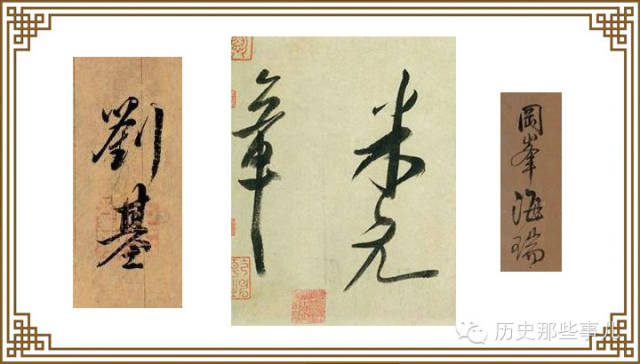 劉基
米元
章
岡峯海瑞
历史那些事儿